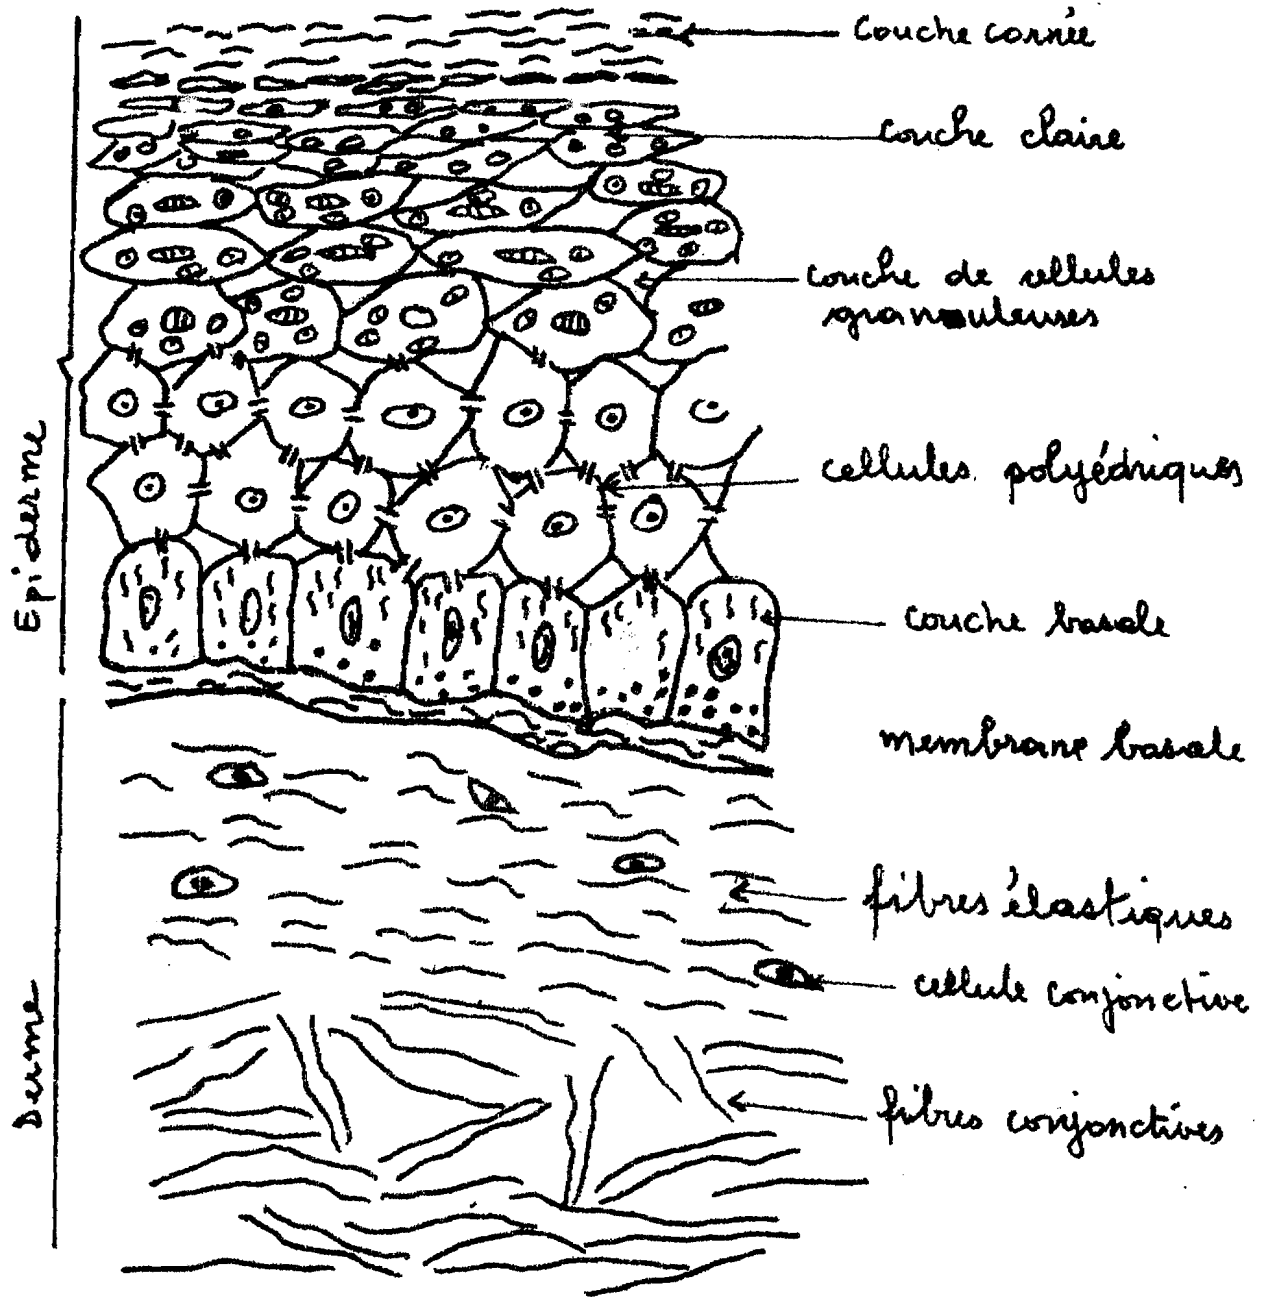 couche cornée
couche claire
couche de cellules
granuleuses
cellules polyédriques
couche basale
membrane basale
fibres élastiques
cellule conjonctive
fibres conjonctives
Epiderme
Derme